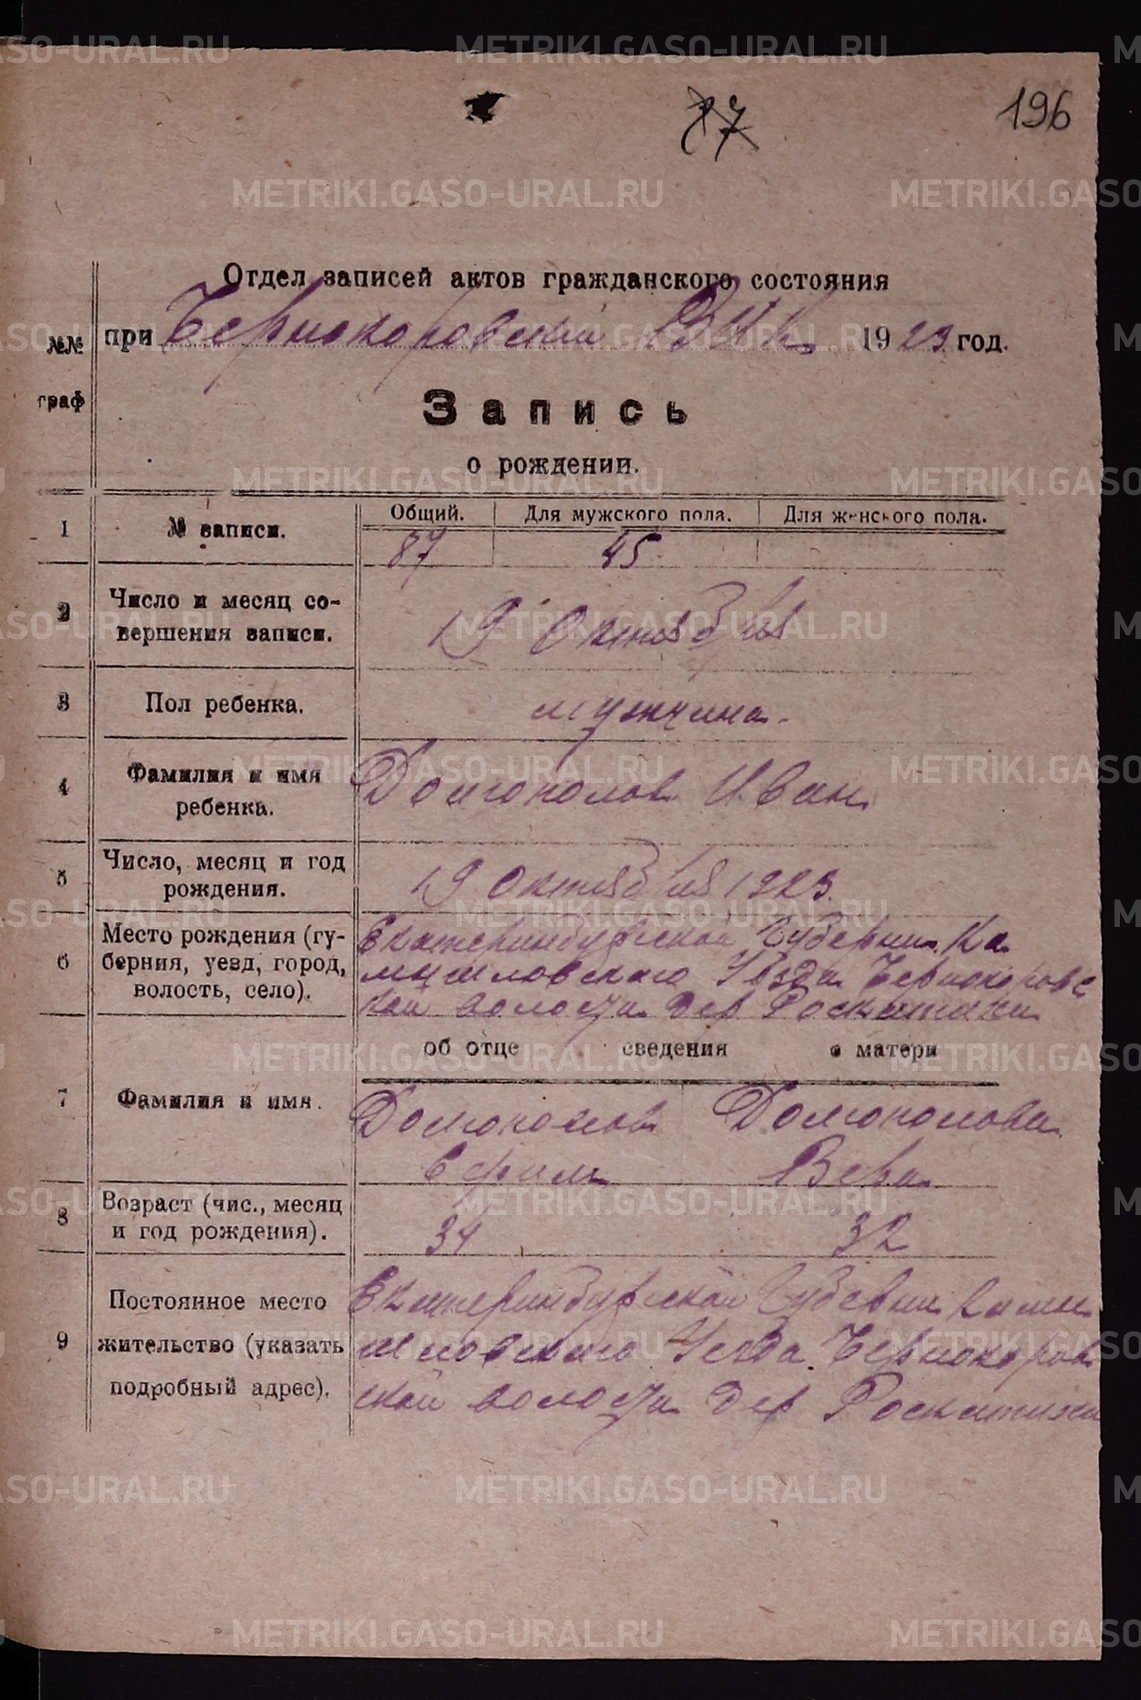 196
87
Отдел записей актов гражданского состояния
№№ граф
при Чернокоровский ВИК 1923 год.
Запись
о рождении.
Общий. Для мужского пола. Для женского пола.
1 № записи. 87 45
2 Число и месяц совершения записи. 19 Октября
3 Пол ребенка. мужчина.
4 Фамилия и имя ребенка. Долгополов Иван
5 Число, месяц и год рождения. 19 Октября 1923.
6 Место рождения (губерния, уезд, город, волость, село).
Екатеринбургской Губернии Ка
мышловского Уезда Чернокоровс
кой волости дер Роскатихи
об отце сведения о матери
7 Фамилия и имя. Долгополов Долгополова
Ефим Вера
8 Возраст (чис., месяц и год рождения). 34 32
9 Постоянное место жительство (указать подробный адрес).
Екатеринбургской Губернии Камы
шловского Уезда Чернокоров
ской волости дер Роскатихи
METRIKI.GASO-URAL.RU